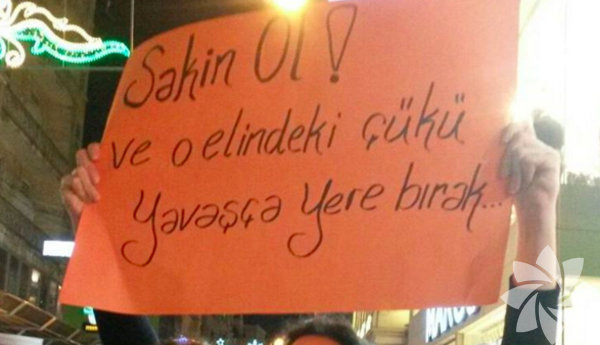 Sakin Ol!
ve o elindeki çükü
yavaşça yere bırak...